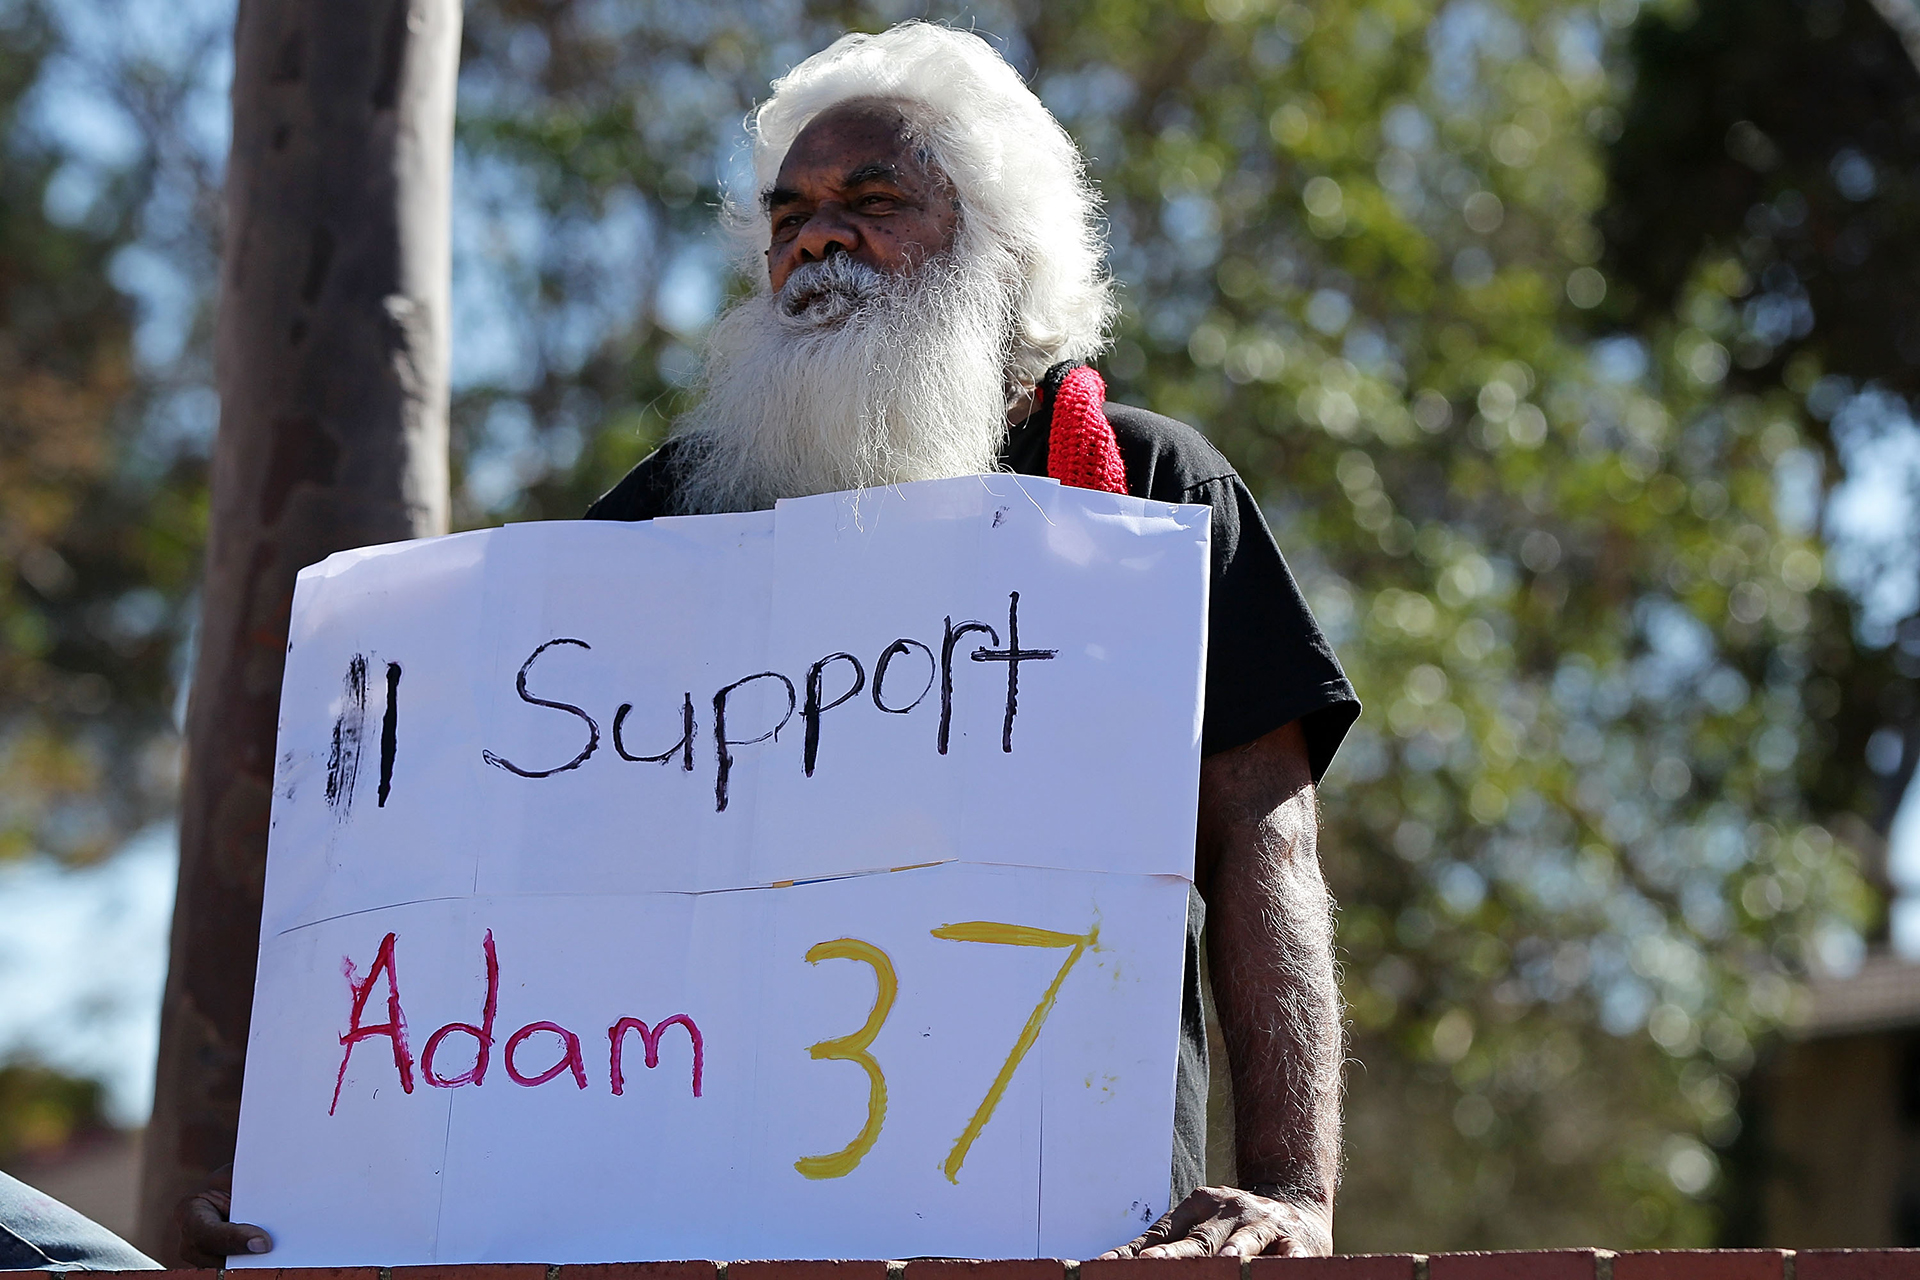 I Support
Adam 37